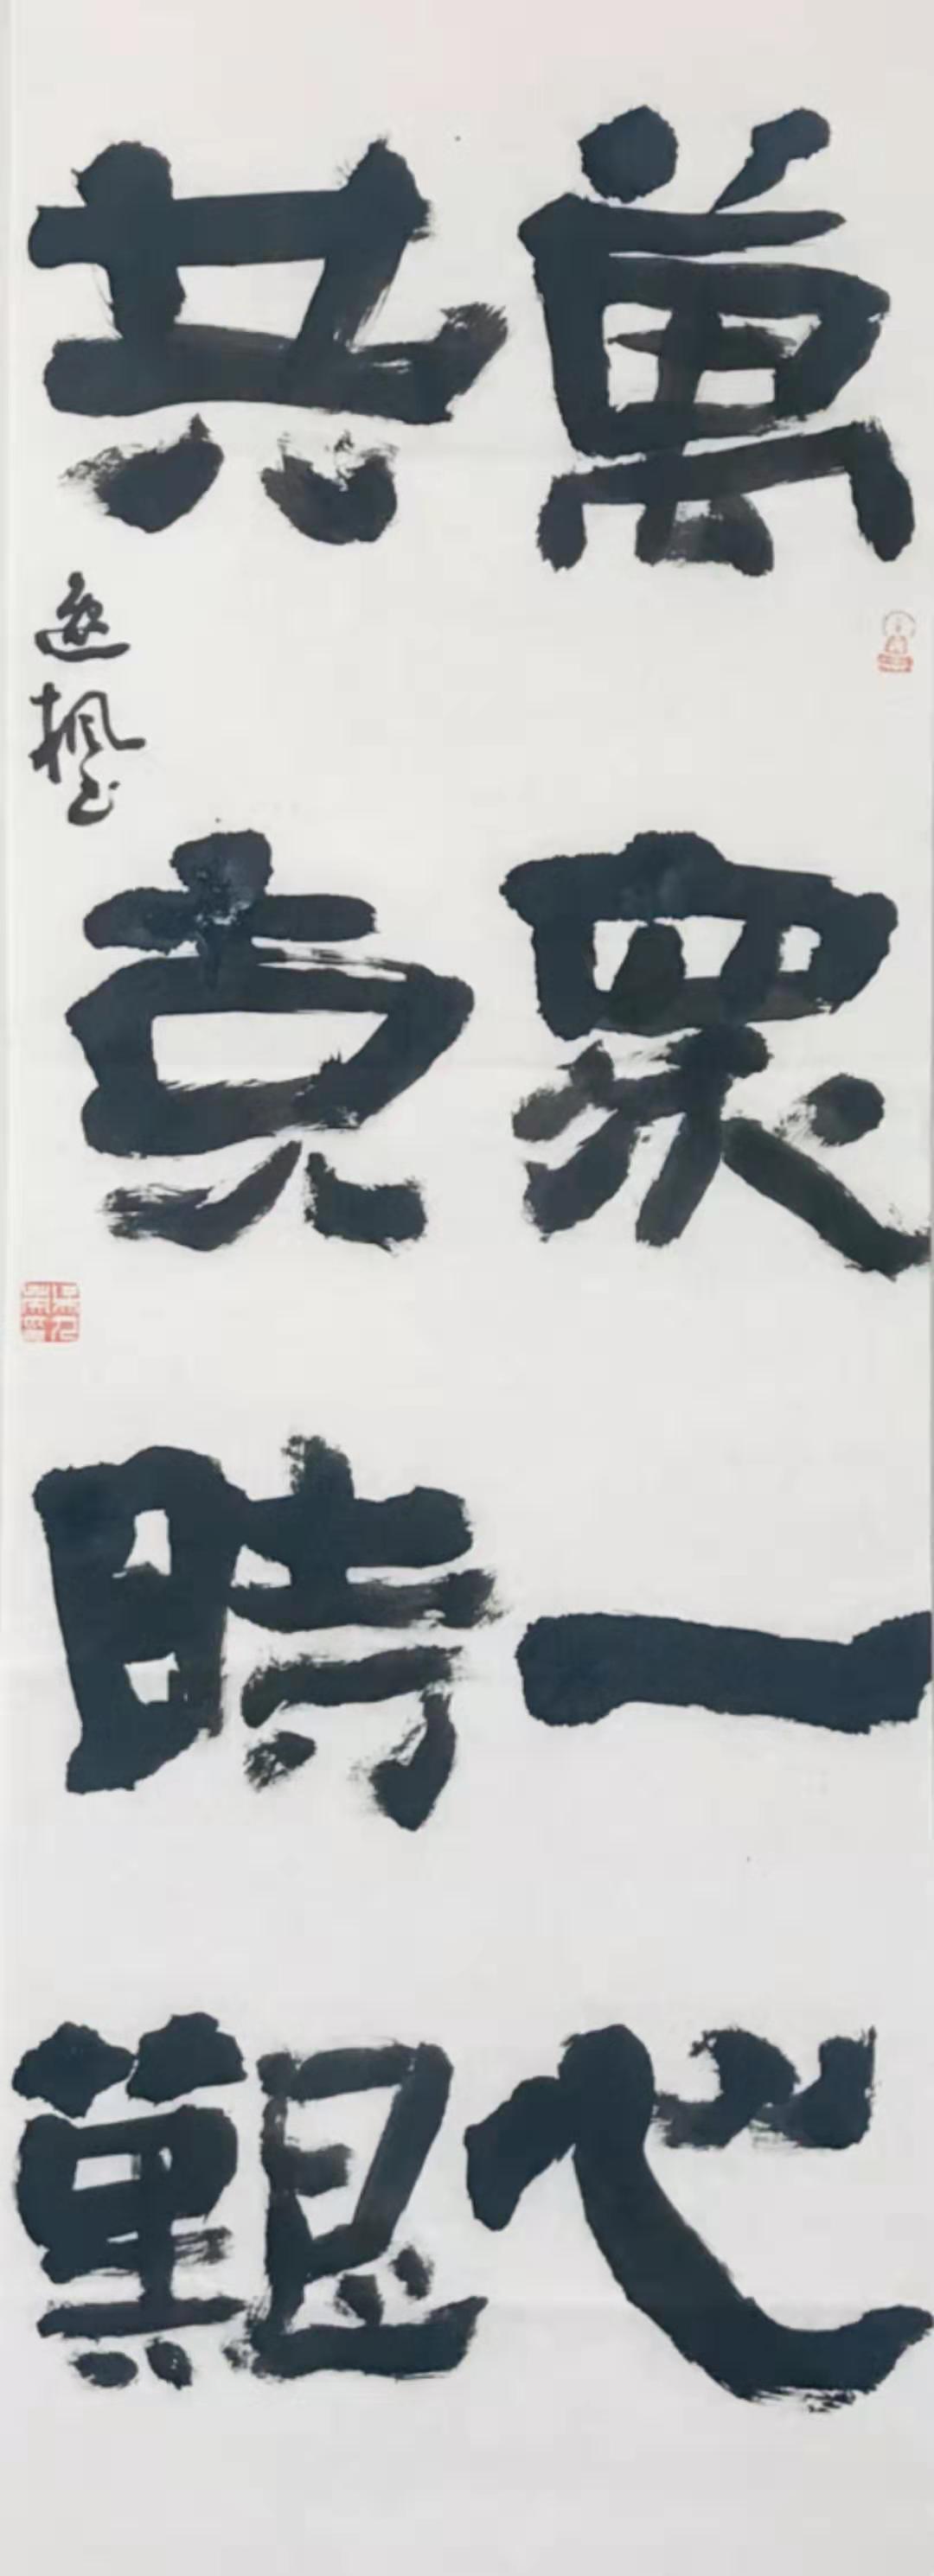 萬眾一心
共克時艱
逸楓书